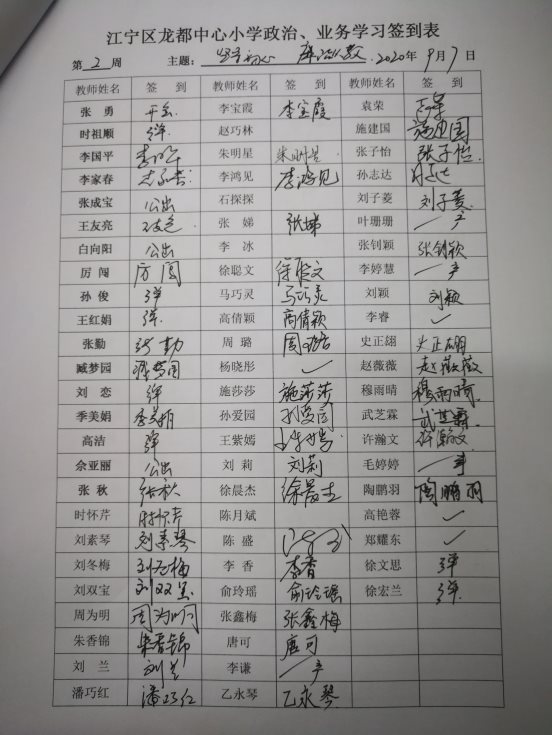 江宁区龙都中心小学政治、业务学习签到表
第 2 周 主题： 2020年 9月 7日
教师姓名 签 到 教师姓名 签 到 教师姓名 签 到
张 勇 开会 李宝霞 李宝霞 袁荣
时祖顺 赵巧林 施建国 施建国
李国平 朱明星 朱明星 张子怡 张子怡
李家春 李鸿见 李鸿见 孙志达
张成宝 公出 石探探 刘子菱 刘子菱
王友亮 张 娣 张娣 叶珊珊 产
白向阳 公出 李 冰 张钊颖 张钊颖
厉 闯 厉闯 徐聪文 徐聪文 李婷慧 产
孙 俊 马巧灵 马巧灵 刘颖 刘颖
王红娟 高倩颖 高倩颖 李睿 ✓
张勤 张勤 周 璐 周璐 史正翃
臧梦园 臧梦园 杨晓彤 ✓ 赵薇薇 赵薇薇
刘 恋 施莎莎 施莎莎 穆雨晴 穆雨晴
季美娟 季美娟 孙爱园 孙爱园 武芝霖 武芝霖
高洁 王紫嫣 许瀚文 许瀚文
佘亚丽 公出 刘 莉 刘莉 毛婷婷
张 秋 张秋 徐晨杰 徐晨杰 陶鹏羽 陶鹏羽
时怀芹 时怀芹 陈月斌 高艳蓉 ✓
刘素琴 刘素琴 陈 盛 郑耀东 ✓
刘冬梅 刘冬梅 李 香 李香 徐文思
刘双宝 刘双宝 俞玲瑶 俞玲瑶 徐宏兰
周为明 周为明 张鑫梅 张鑫梅
朱香锦 朱香锦 唐可 唐可
刘 兰 刘兰 李谦 产
潘巧红 潘巧红 乙永琴 乙永琴